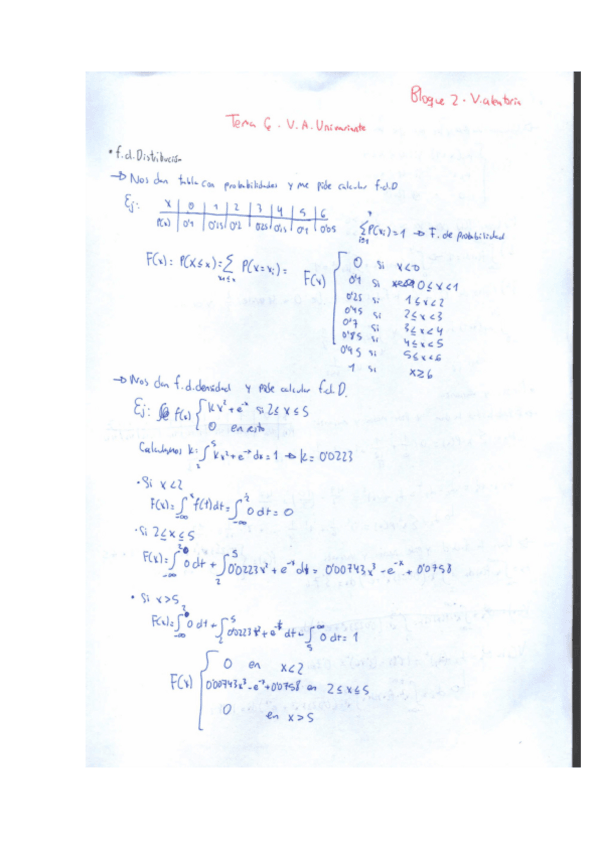 Bloque 2 - V. aleatoria
Tema 6 - V. A. Univariante
• f.d. Distribución
→ Nos dan tabla con probabilidades y me pide calcular f.d.D
Ej:
x | 0 | 1 | 2 | 3 | 4 | 5 | 6
P(x) | 0'1 | 0'15 | 0'2 | 0'25 | 0'15 | 0'1 | 0'05
∑P(xi)=1 → F. de probabilidad
F(x) = P(X≤x) = ∑ P(X=xi) = F(x) {
0 si x<0
0'1 si 0≤x<1
0'25 si 1≤x<2
0'45 si 2≤x<3
0'7 si 3≤x<4
0'85 si 4≤x<5
0'95 si 5≤x<6
1 si x≥6
→ Nos dan f.d.densidad y pide calcular f.d.D.
Ej: f(x) { kx²+e⁻ˣ si 2≤x≤5
0 en resto
Calculamos k: ∫₂⁵ kx²+e⁻ˣ dx=1 → k=0'0223
• Si x<2
F(x)=∫ f(t)dt=∫ 0 dt=0
• Si 2≤x≤5
F(x)=∫ 0 dt + ∫₂⁵ 0'0223x²+e⁻ˣ dx = 0'00743x³-e⁻ˣ+0'0758
• Si x>5
F(x)=∫ 0 dt + ∫₂⁵ 0'0223t²+e⁻ᵗ dt + ∫₅ 0 dt = 1
F(x) {
0 en x<2
0'00743x³-e⁻ˣ+0'0758 en 2≤x≤5
0 en x>5